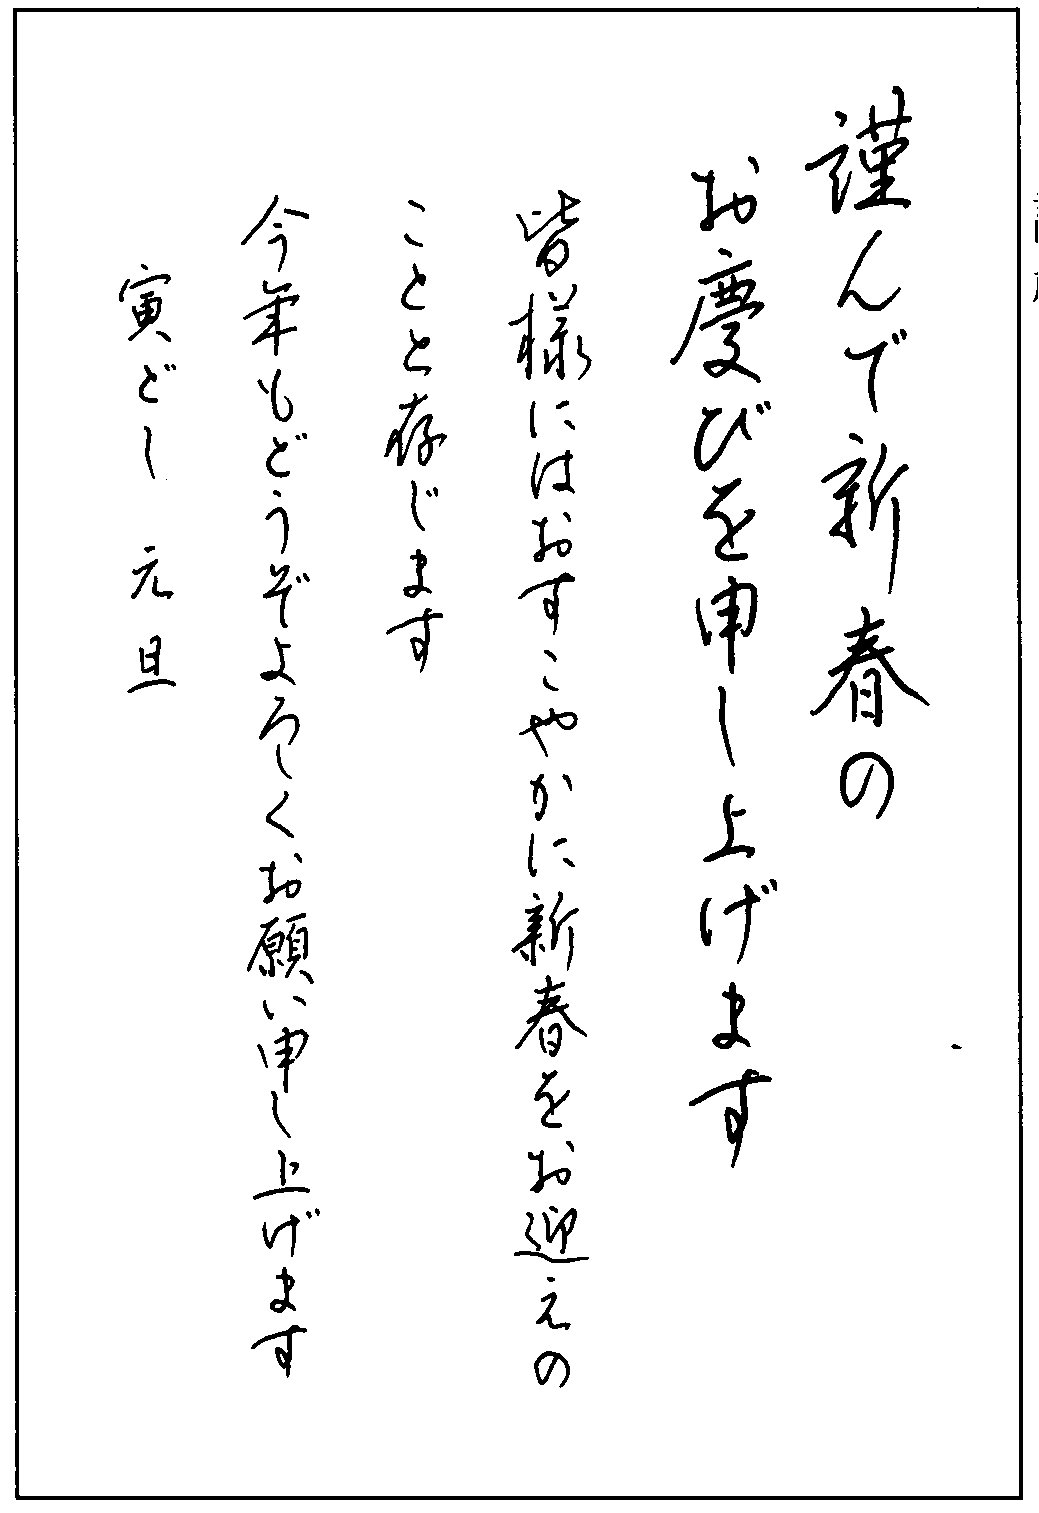 謹んで新春の
お慶びを申し上げます
皆様にはおすこやかに新春をお迎えの
ことと存じます
今年もどうぞよろしくお願い申し上げます
寅どし 元旦